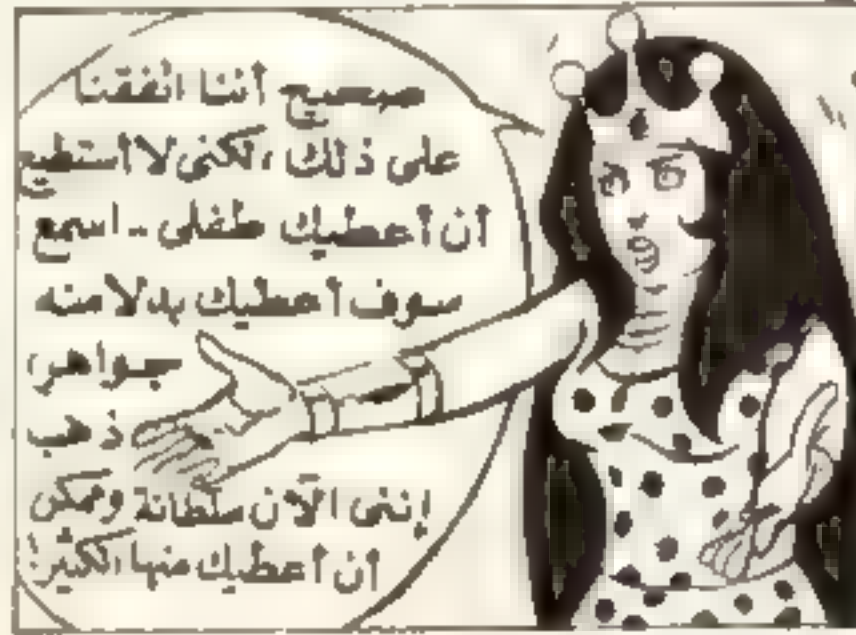 صحيح أننا اتفقنا
على ذلك ، لكنى لا أستطيع
أن أعطيك طفلى .. اسمع
سوف أعطيك بدلا منه
جواهر،
ذهب
إننى الآن سلطانة وممكن
أن أعطيك منها الكثير!